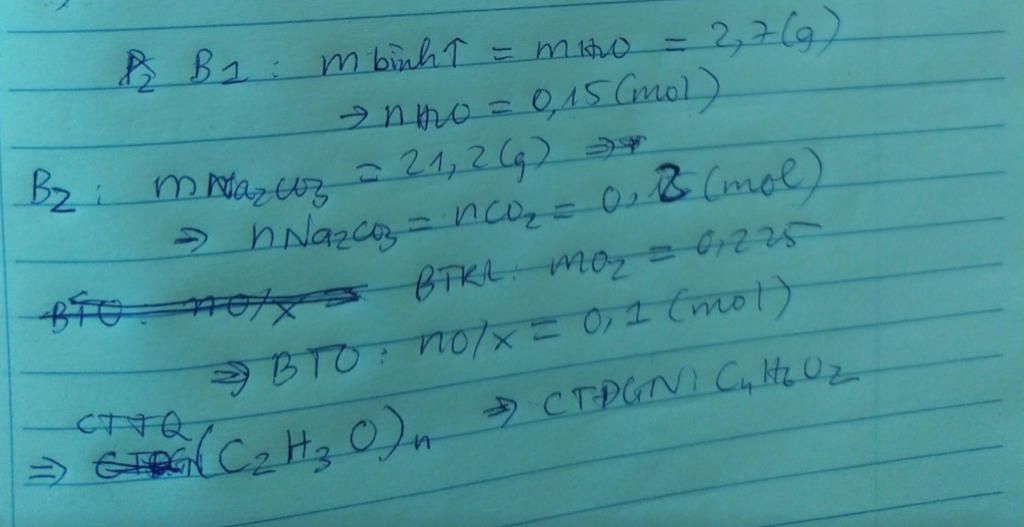 B1 : m bình↑ = mH2O = 2,7(g)
→ nH2O = 0,15(mol)
B2 : mNa2CO3 = 21,2(g) ⇒
⇒ nNa2CO3 = nCO2 = 0,2 (mol)
BTO : nO/x ⇒ BTKL : mO2 = 0,225
⇒ BTO : nO/x = 0,1 (mol)
CTTQ
⇒ (C2H3O)n ⇒ CTĐGN: C4H6O2